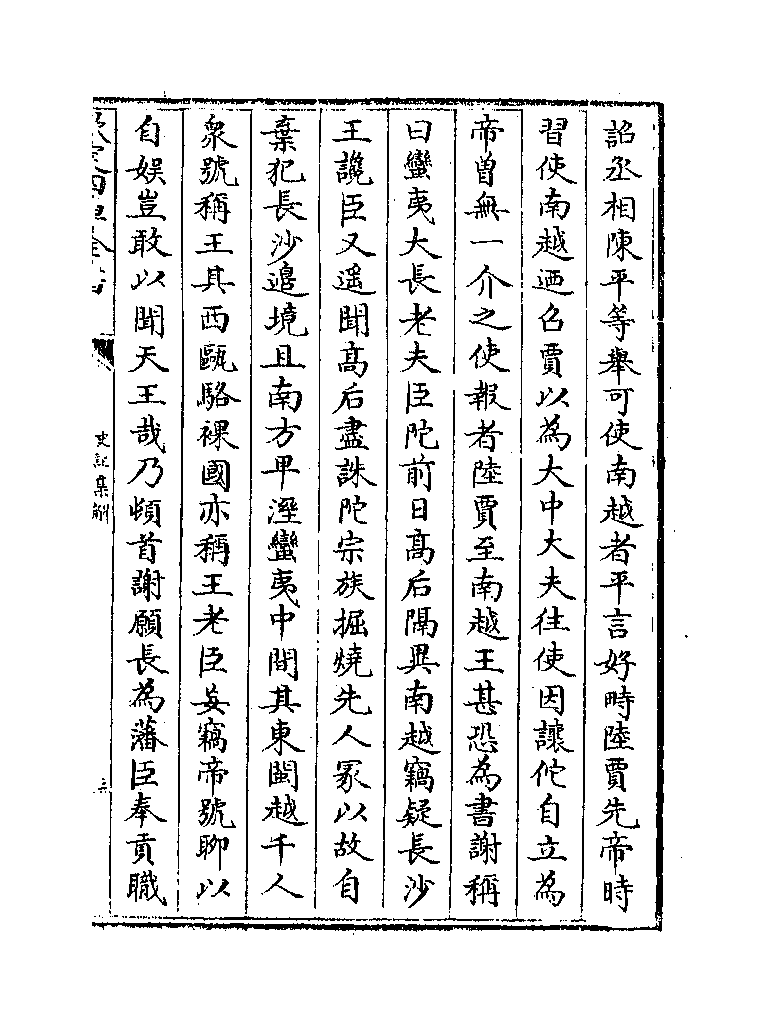 詔丞相陳平等舉可使南越者平言好畤陸賈先帝時
習使南越迺召賈以為大中大夫往使因讓佗自立為
帝曾無一介之使報者陸賈至南越王甚恐為書謝稱
曰蠻夷大長老夫臣陀前日髙后隔異南越竊疑長沙
王讒臣又遥聞髙后盡誅陀宗族掘燒先人冢以故自
棄犯長沙邉境且南方卑溼蠻夷中間其東閩越千人
衆號稱王其西甌駱裸國亦稱王老臣妄竊帝號聊以
自娱豈敢以聞天王哉乃頓首謝願長為藩臣奉貢職
史記集解